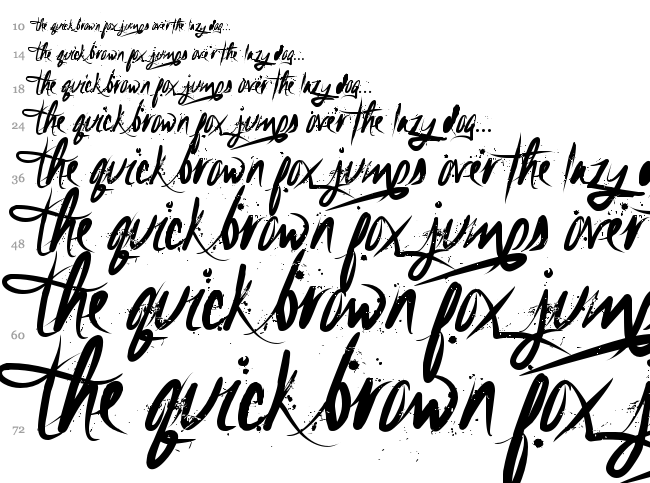 10 the quick brown fox jumps over the lazy dog...
14 the quick brown fox jumps over the lazy dog...
18 the quick brown fox jumps over the lazy dog...
24 the quick brown fox jumps over the lazy dog...
36 the quick brown fox jumps over the lazy d
48 the quick brown fox jumps over
60 the quick brown fox jump
72 the quick brown fox j